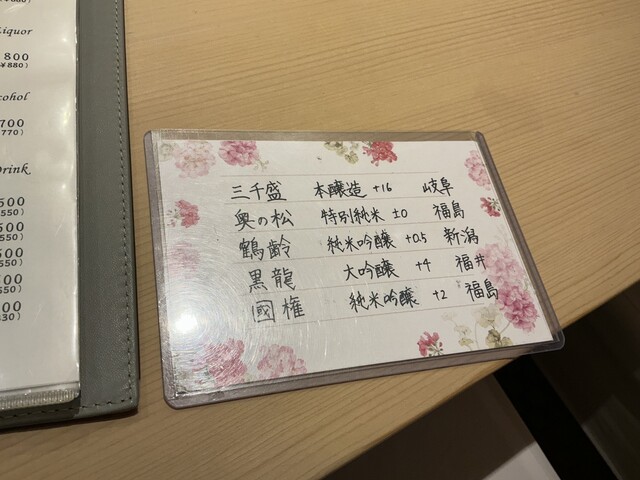 Liquor
800
¥880)
cohol
700
770)
Drink
500
550)
500
550)
500
550)
500
550)
300
330)
三千盛 本醸造 +16 岐阜
奥の松 特別純米 ±0 福島
鶴齢 純米吟醸 +0.5 新潟
黒龍 大吟醸 +4 福井
國権 純米吟醸 +2 福島